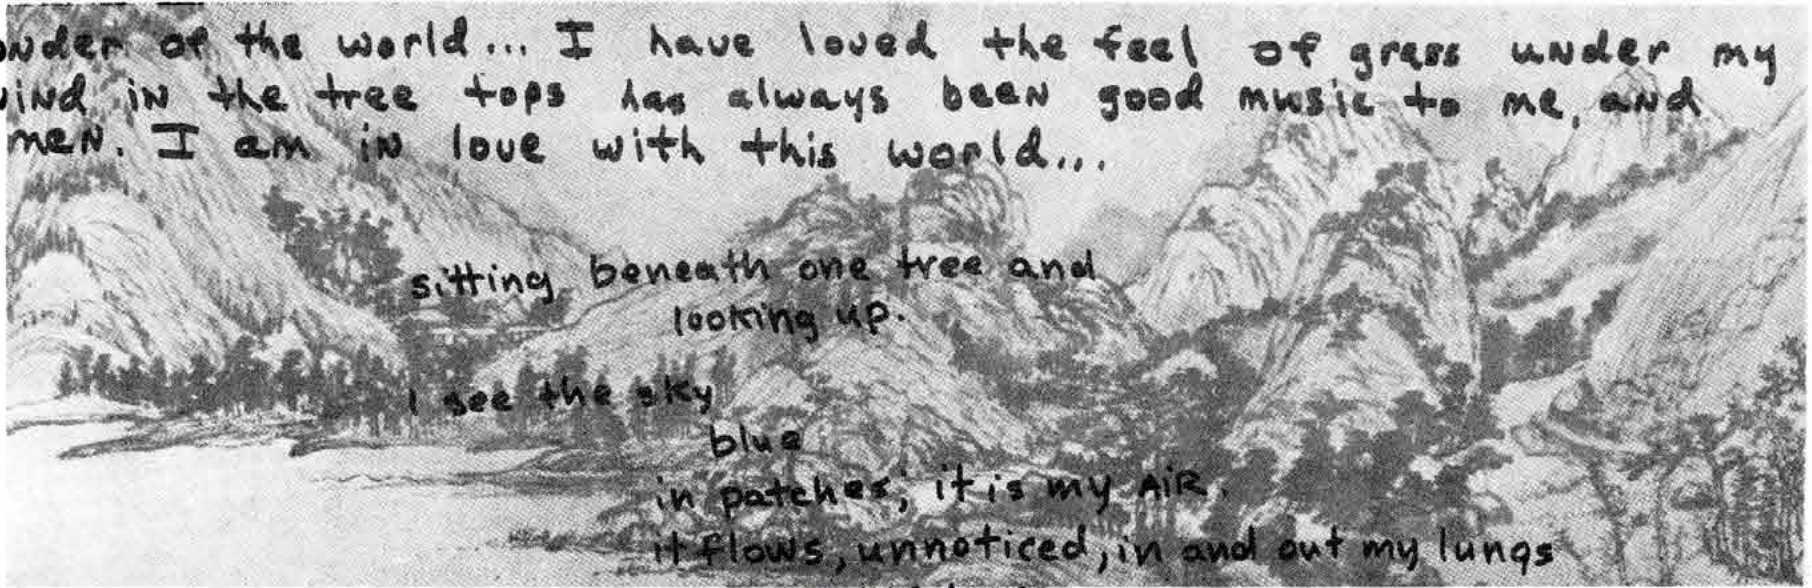 onder of the world... I have loved the feel of grass under my
wind in the tree tops has always been good music to me, and
men. I am in love with this world...
sitting beneath one tree and
looking up.
I see the sky
blue
in patches; it is my AIR.
it flows, unnoticed, in and out my lungs